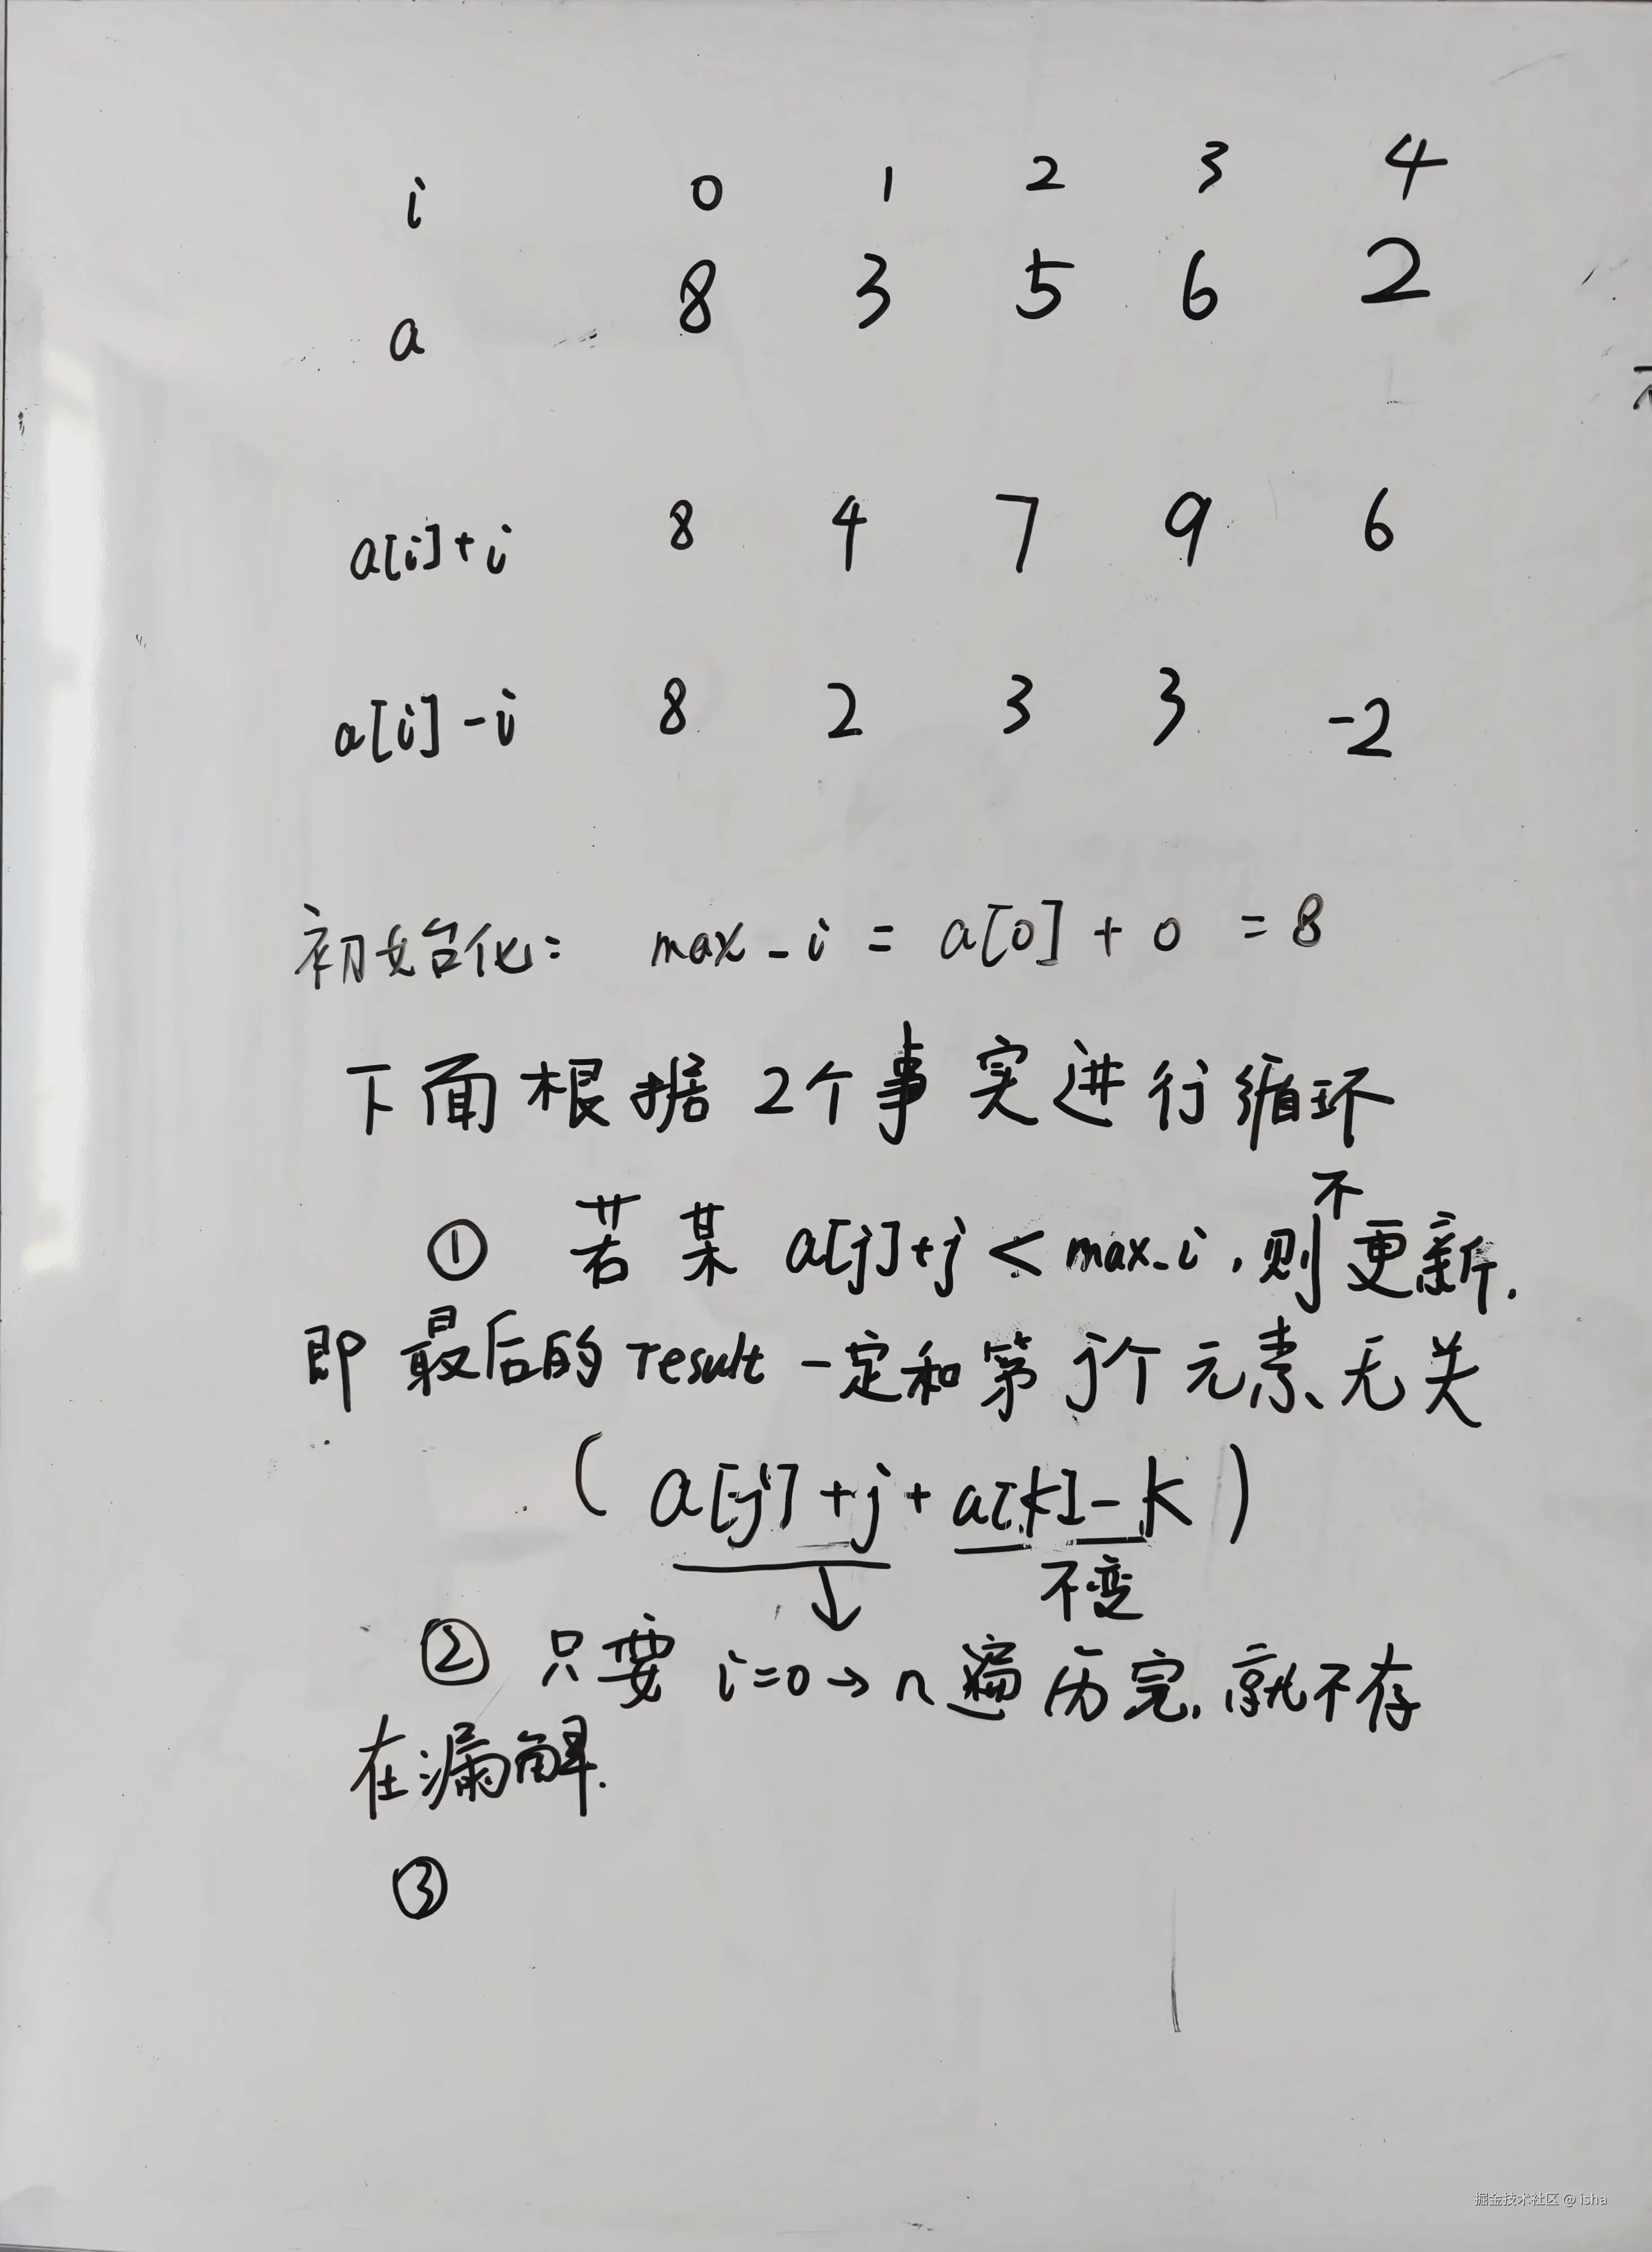 i 0 1 2 3 4
a 8 3 5 6 2
a[i]+i 8 4 7 9 6
a[i]-i 8 2 3 3 -2
初始化: max_i = a[0] + 0 = 8
下面根据2个事实进行循环
① 若某 a[j]+j < max_i, 则不更新.
即最后的result一定和第j个元素无关
( a[j]+j + a[k]-k )
↓ 不变
② 只要 i=0→n遍历完,就不存
在漏解.
③
掘金技术社区 @ isha